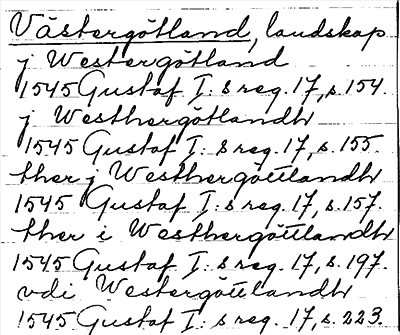 Västergötland, landskap
j Westergötland
1545 Gustaf I:s reg. 17, s. 154.
j Westhergötlandh
1545 Gustaf I:s reg. 17, s. 155.
ther j Westhergöttlandh
1545 Gustaf I:s reg. 17, s. 157.
ther i Westhergöttlandh
1545 Gustaf I:s reg. 17, s. 197.
vdi Westergöttlandh
1545 Gustaf I:s reg. 17, s. 223.